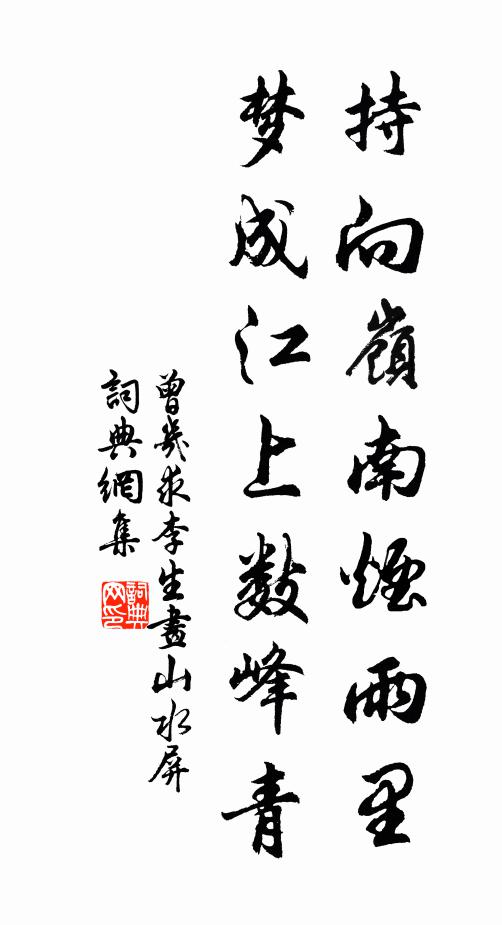 持向嶺南煙雨里
梦成江上数峰青
曾幾求李生畫山水屏
詞典網集
詞典网印